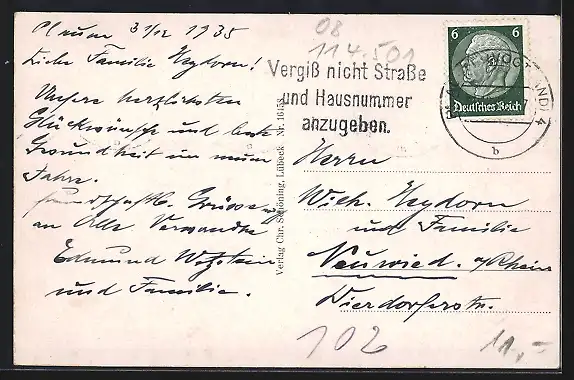 Plauen 31/12 1935
Liebe Familie Heydorn!
Unsere herzlichsten
Glückwünsche und beste
Gesundheit im neuen
Jahre.
Freundschaftl. Grüsse
an Alle Verwandte
Edmund Wetzstein
und Familie.
Verlag Chr. Schöning, Lübeck Nr. 16158
08
114.501
Vergiß nicht Straße
und Hausnummer
anzugeben.
6 6
Deutsches Reich
(VOGTLAND) 4
b
Herrn
Wilh. Heydorn
und Familie
Neuwied. a/Rhein
Dierdorferstr.
102
11,-